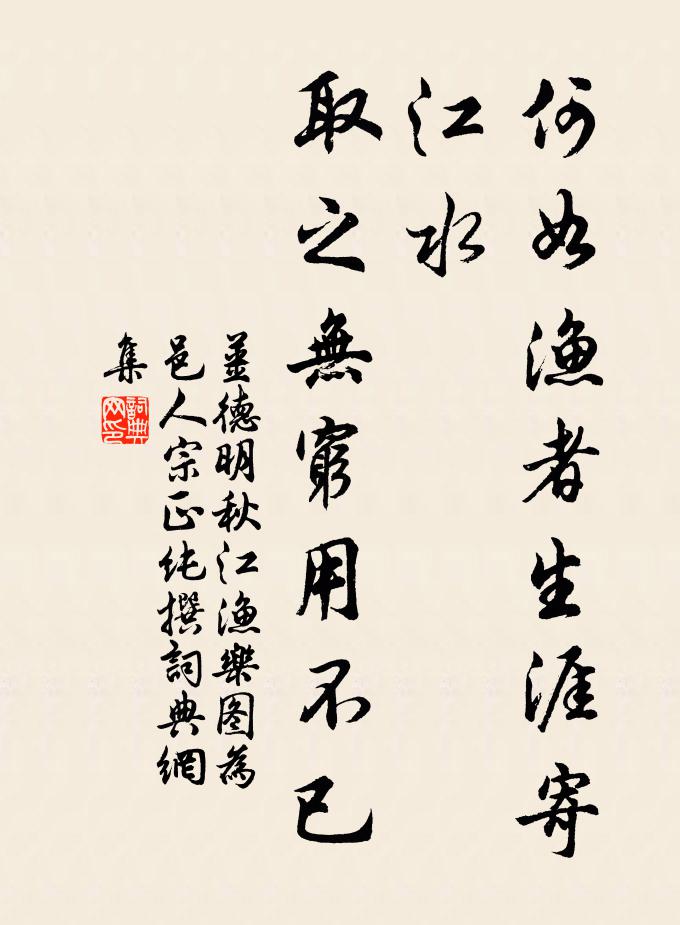 何如漁者生涯寄
江水
取之無窮用不已
姜德明秋江漁樂图為
邑人宗正纯撰詞典網
集
詞典
网印